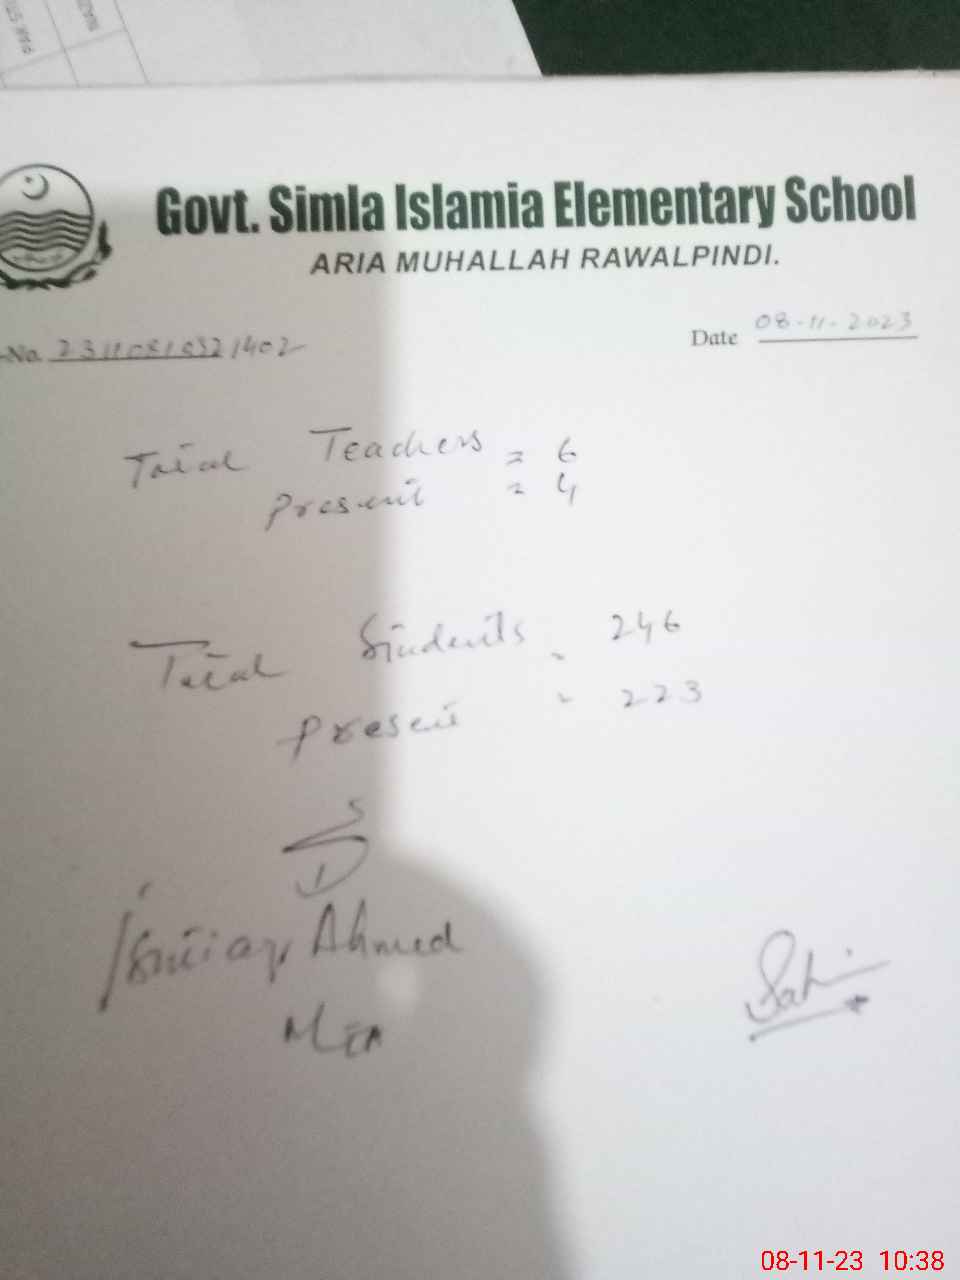 Govt. Simla Islamia Elementary School
ARIA MUHALLAH RAWALPINDI.
No.
Date 08-11-2023
Total Teachers = 6
Present = 4
Total Students = 246
Present = 223
Ahmed
MEA
08-11-23 10:38